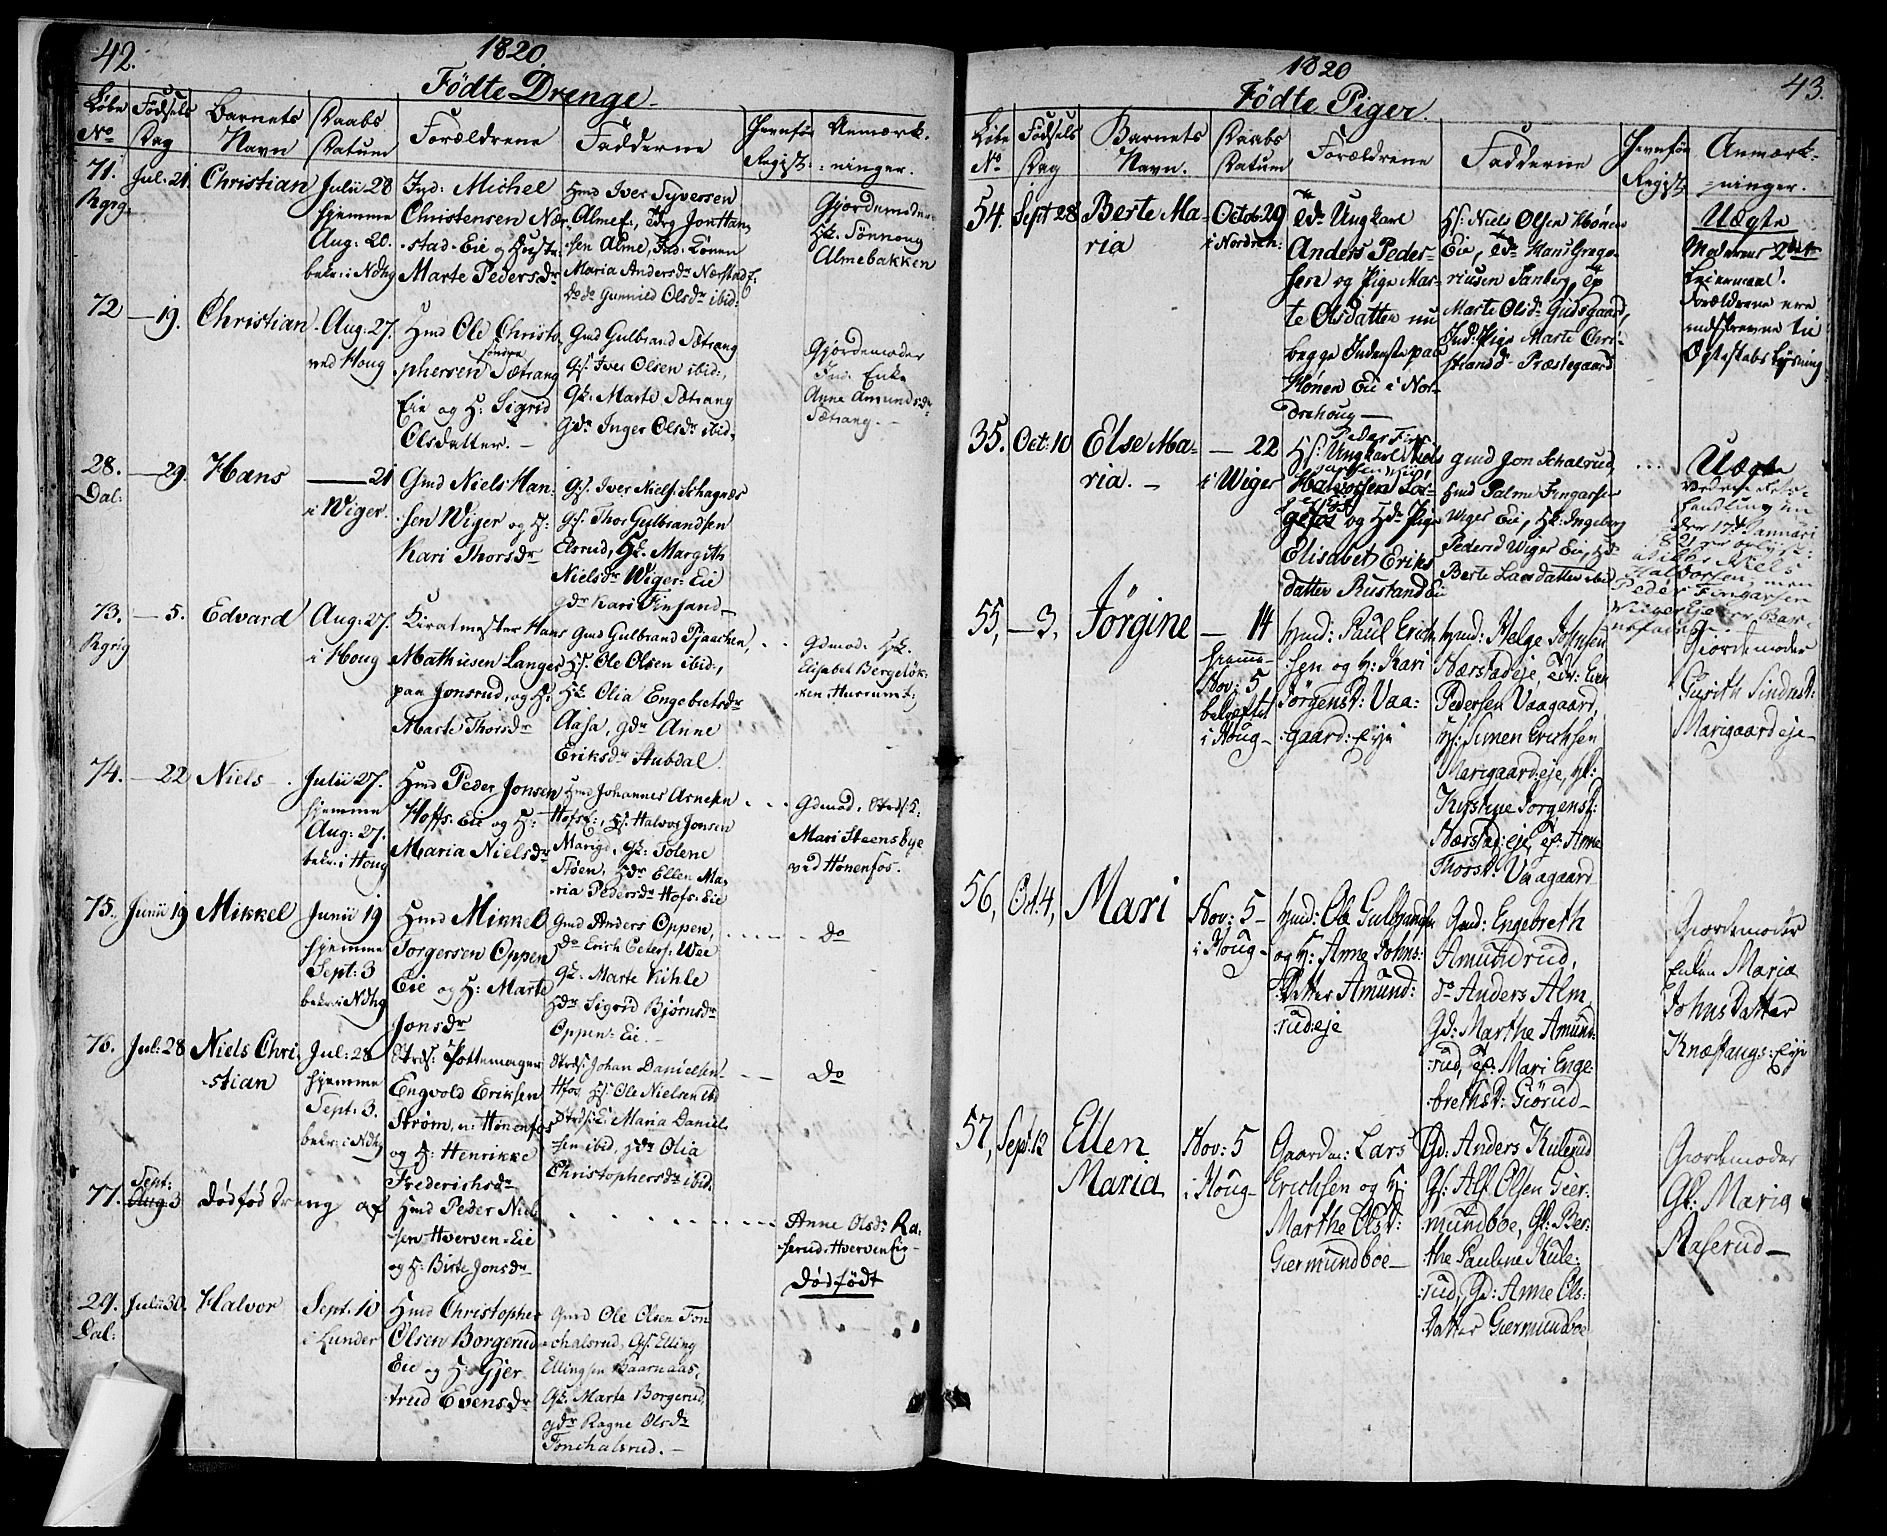 42.
1820.
Födte Drenge.
Löbe No
Födsels Dag
Barnets Navn
Daabs Datum
Forældrene
Fadderne
Jevnför Regist:
Anmærk-
ninger.
71.
Rgrg.
Jul: 21.
Christian
Julii 28
hjemme
Aug: 20.
bekr: i Ndhg
Ind: Michel
Christensen Nær-
stad-Eie og Hustr:
Marte Pedersdr
Hmd Iver Syversen
Almef:, Jonttan-
sen Alme, Ind: Lönen
Maria Andersdr Nærstad E.
Do do Gunnild Olsdr ibid:
Gjordemoder
Hk. Tönnoug
Almebakken
72
- 19.
Christian
Aug: 27.
ved Houg
Hmd Ole Christo-
phersen söndre Sætrang
Eie og H: Sigrid
Olsdatter. -
Gmd Gulbrand Sætrang
Gs. Iver Olsen ibid:,
Gk. Marte Sætrang
Gdr Inger Olsdr ibid:
Gjordemoder
Ind. Enke
Anne Amundsdr
Sætrang. -
28.
Dal:
- 29.
Hans
- 21
i Viger.
Gmd Niels Han-
sen Viger og H:
Kari Thorsdr
Gs. Iver Niels: Schagnæs
Gs. Thor Gulbrandsen
Elsrud, Hk. Margith
Nielsdr Wiger: Eie
Gdr Kari Finsand
73.
Rgrig
- 5.
Edvard
Aug: 27.
i Houg
Mathisen Lange
paa Jonsrud, og H:
Marte Thorsdr
Gmd Gulbrand Pjaacken,
Hs. Ole Olsen ibid:,
Hk. Olia Engebretsdr
Aasa, Gdr Anne
Eriksdr Stubdal.
Gdmod: Hk.
Elisabet Bergelök-
ken
74.
- 22
Niels
Julii 27.
hjemme
Aug: 27.
bekr: i Houg
Hmd Peder Jonsen
Hoffs: Eie og H:
Maria Nielsdr
Hmd Johannes Arnesen
Hofsf:, Hs. Halvor Jonsen
Marigd., Gk: Tolene
Töen, Hdr Ellen Ma-
ria Pedersdr Hofs: Eie
Gdmod.
Mari Steensbye
ved Hönenfos.
75.
Junii 19
Mikkel
Junii 19
hjemme
Sept: 3
bekr: i Ndhg
Hmd Mikkel
Torgersen Oppen
Eie og H: Marte
Jonsdr
Gmd Anders Oppen,
Do Erich Peters: Wee
Gk. Marte Kihle
Hdr Sigrid Björnsdr
Oppen: Eie.
Do
76.
Jul: 28
Niels Chri-
stian
Jul: 28
hjemme
Sept: 3.
bekr: i Ndhg
Strds: Pottemager
Engvold Eriksen
Ström, u: Hönenfos
og H: Henrikke
Frederichsdr
Strds: Johan Danielsen
Hfos, Hs. Ole Nielsen ibd
Strds: E: Maria Daniel-
sen ibid, Hdr Olia
Christophersdr ibid.
Do
77.
Sept:
Aug: 3
Dödföd Dreng af
Hmd Peder Niel-
sen Hverven: Eie
og H: Birte Jonsdr
Anne Olsdr Ra-
serud. Hverven Eie -
Dödfödt
29.
Dal:
Julii 30.
Halvor
Sept: 10
i Lunder
Hmd Christopher
Olsen Borgerud
Eie og H: Gjer-
trud Evensdr
Gmd Ole Olsen Ton-
chalsrud, Gs. Elling
Ellingsen Baarnaas,
Gk. Marte Borgerud,
Gdr Ragne Olsdr
Tonchalsrud. -
43.
1820
Födte Piger.
Löbe No
Födsels Dag
Barnets Navn.
Daabs Datum
Forældrene
Fadderne
Jevnför Regist:
Anmærk-
ninger.
54.
Sept 28
Berte Ma-
ria
Octob: 29
i Nordreh:
Ungkarl
Anders Peder-
sen og Pige Mar-
te Olsdatter nu
begge Inderste paa
Hönen Eie i Nor-
drehoug -
Hs: Niels Olsen Hönen
Eie, Hans Grego-
riusen Tanberg,
Marte Olsdr Gudsgaard,
Ind: Pige Marte Chri-
stiansdr Præstegaard
Uægte
Moderens 2det
Leiermaal.
Forældrene ere
indskrevne til
Ægteskabs Lysning
35.
Oct: 10
Else Ma-
ria. -
- 22
i Wiger
Hs: Ungkarl Niels
Halvorsen Sör-
og Hdr Pige
Elisabet Eriks-
datter Rustand Eie
Gmd Jon Schalrud
Hmd Palme Fingarsen
Wiger Eie, Hk. Ingeborg
Pedersd Wiger Eie, Hdr
Berte Larsdatter ibid
Uægte
der 17de Januari
1821
Niels
Halvorsen, men
Peder Fingarsen
Wiger Eie er Bar-
nefader
55,
- 3.
Jörgine
- 14
hjemme
Nov: 5
bekræftet
i Houg -
Hmd: Paul Erich-
sen og H: Kari
Jörgensd: Vaa-
gaard: Eje
Hmd: Helge Johnsen
Nærstadeje, Even
Pedersen Vaagaard,
Hs: Simen Erichsen
Marigaardeje, Hk:
Kirstine Jörgensd:
Nærstad: eje, Anne
Thorsd: Vaagaard
Gjordemoder
Gurith Sindresd:
Marigaardeje -
56,
Oct. 4,
Mari
Nov: 5 -
i Houg -
Hmd: Ole Gulbrandsen
og H: Anne Johns-
Datter Amund-
rudeje
Gmd: Engebreth
Amundrud,
do Anders Alm,
Gd: Marthe Amund-
rud, Mari Enge-
brethsd: Giörud -
Gjordemoder
Enken Maria
Johns Datter
Knæstangs: Eje
57,
Sept: 12
Ellen
Maria
Nov: 5
i Houg -
Gaardm: Lars
Erichsen og H:
Marthe Olsd:
Giermundboe -
Gd: Anders Kulerud
Gs: Alf Olsen Gier-
mundboe, Gk: Ber-
the Pauline Kule-
rud, Gd: Anne Ols-
Datter Giermundboe
Gjordemoder
Gk: Maria
Raserud -